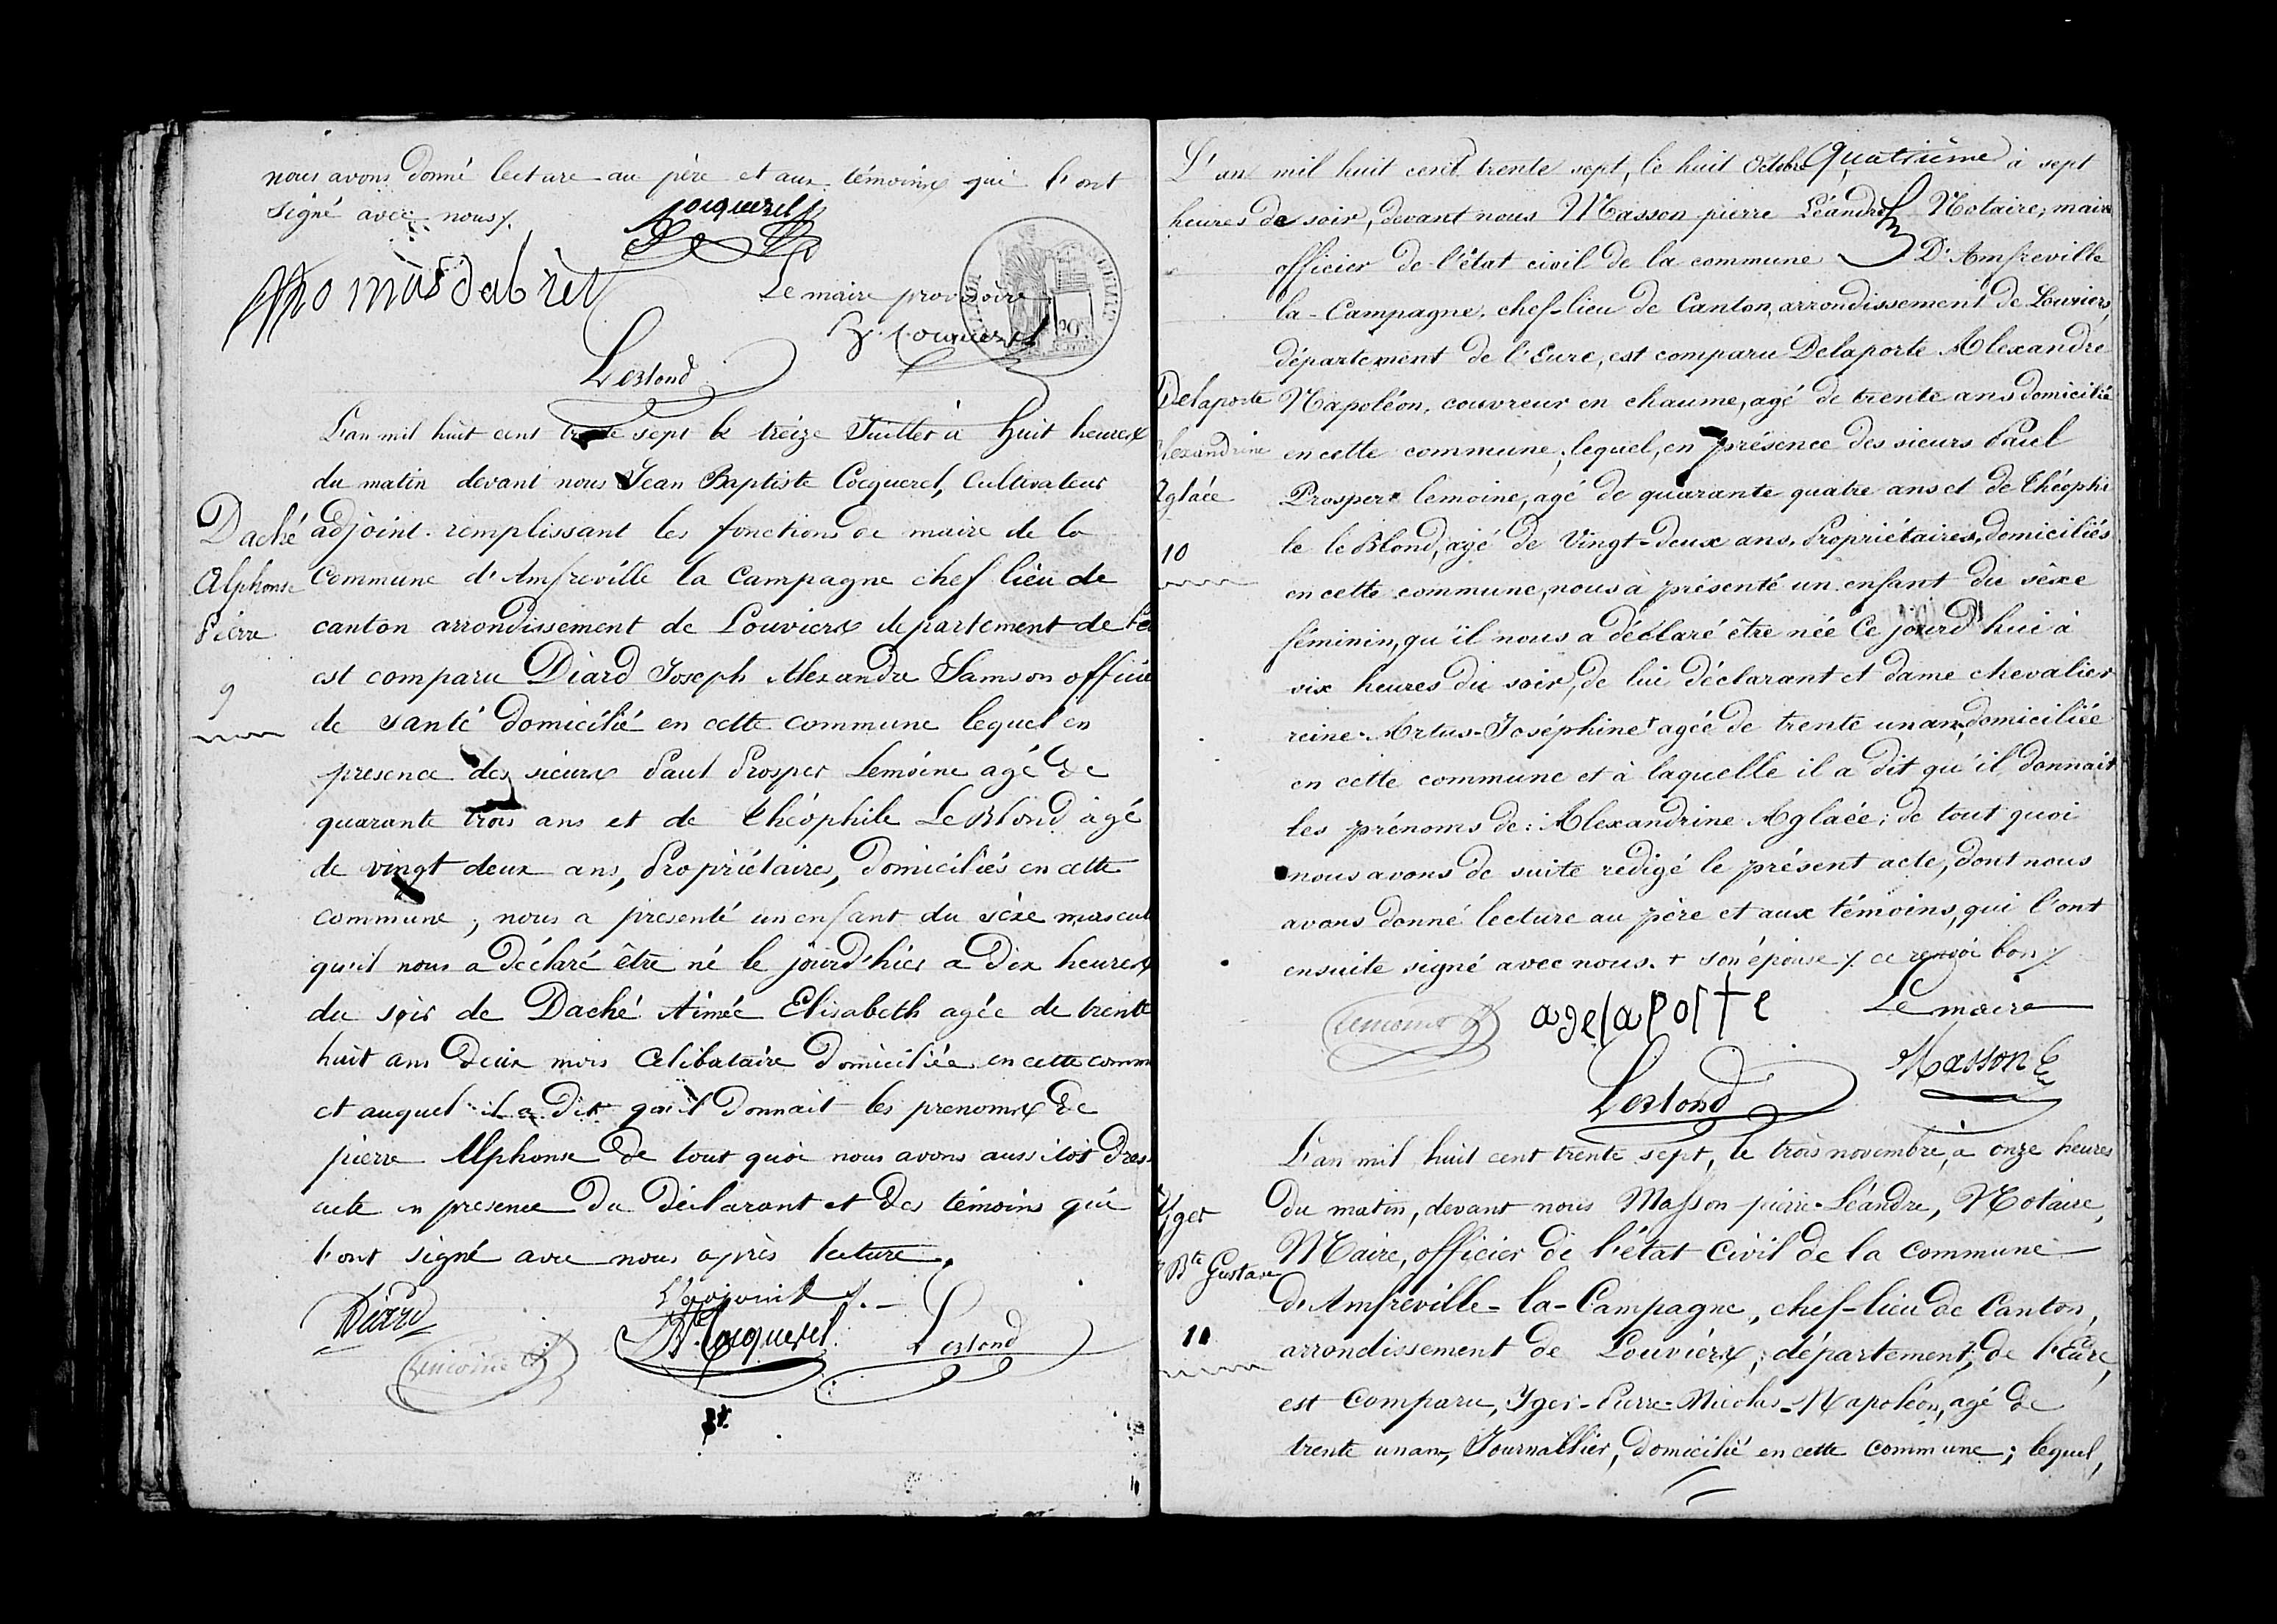 nous avons donné lecture au père et aux témoins qui l'ont
signé avec nous /.
Cocquerel
Thomas dabret
Le maire provisoire
Leblond
L'an mil huit cent trente sept le treize Juillet à huit heures
du matin devant nous Jean Baptiste Cocquerel, Cultivateur
Daché
adjoint remplissant les fonctions de maire de la
Alphonse
commune d'Amfreville la Campagne chef lieu de
Pierre
canton arrondissement de Louviers departement de l'Eu
9
est comparu Diard Joseph Alexandre Samson officie
de santé domicilié en cette commune lequel en
presence des sieurs Paul Prosper Lemoine agé de
quarante trois ans et de Théophile LeBlond agé
de vingt deux ans, Propriétaires, domiciliés en cette
commune ; nous a presenté un enfant du sèxe mascul
qu'il nous a déclaré être né le jourd'hier a dix heures
du soir de Daché Aimée Elisabeth agée de trente
huit ans deux mois Celibataire domiciliée en cette comm
et auquel il a dit qu'il donnait les prenoms de
pierre Alphonse de tout quoi nous avons aussitot dres
acte en presence du déclarant et des témoins qui
l'ont signé avec nous après lecture.
Diard
L'adjoint /.
Lemoine
Bte Cocquerel
Leblond
L'an mil huit cent trente sept, le huit Octobre Quatrième à sept
heures de soir, devant nous Masson pierre Léandre Notaire, maire
officier de l'état civil de la commune D'Amfreville
la-Campagne, chef-lieu de Canton, arrondissement de Louviers,
département de l'Eure, est comparu Delaporte Alexandre
Delaporte
Napoléon, couvreur en chaume, agé de trente ans domicilié
lexandrine
en cette commune, lequel, en présence des sieurs Paul
Aglaée
Prosper lemoine, agé de quarante quatre ans et de Théophi
10
le le Blond, agé de Vingt-deux ans, Propriétaires, domiciliés
en cette commune, nous à présenté un enfant du sèxe
féminin, qu'il nous a déclaré être née Ce jourd'hui à
six heures du soir, de lui déclarant et dame chevalier
reine-Artus-Joséphine + agée de trente un ans, domiciliée
en cette commune et à laquelle il a dit qu'il donnait
les prénoms de : Alexandrine Aglaée ; de tout quoi
nous avons de suite rédigé le présent acte, dont nous
avons donné lecture au père et aux témoins, qui l'ont
ensuite signé avec nous. + son épouse /. ce renvoi bon /.
Lemoine
adelaporte
Le maire
Leblond
Masson
L'an mil huit cent trente sept, le trois novembre, à onze heures
Yger
du matin, devant nous Masson pierre-Léandre, Notaire,
Bte Gustave
Maire, officier de l'état civil de la commune
d'Amfreville-la-Campagne, chef-lieu de Canton,
11
arrondissement de Louviers, département, de l'Eure,
est comparu, Yger-Pierre-Nicolas-Napoléon, agé de
trente un ans, Journallier, domicilié en cette commune ; lequel,